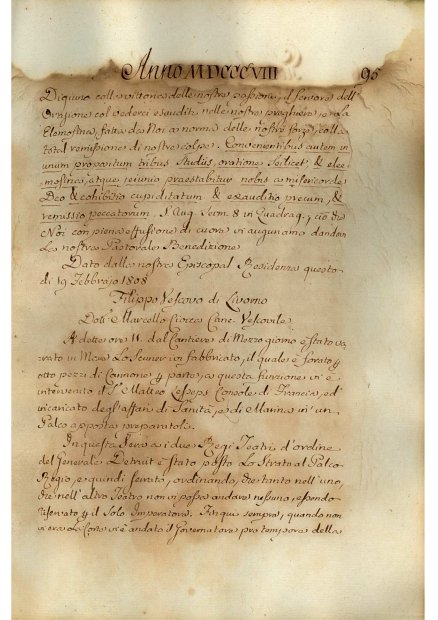 Anno MDCCCVIII 95
Digiuno colla vittoria delle nostre passioni, il fervore dell'
Orazione col vederci esauditi nelle nostre preghiere, e colla
Elemosina, fatta da Noi a norma delle nostre forze, colla
total remissione di nostre colpe. Convenientibus autem in
unum propositum tribus studiis, oratione scilicet, & elee
mosina, atque jejunio praestabitur nobis a misericorde
Deo & cohibitio cupiditatum & exauditio precum, &
remissio peccatorum. S. Aug. Serm. 8 in Quadrag., ciò che
Noi con piena effusione di cuore vi auguriamo dandovi
la nostra Pastorale Benedizione.
Dato dalla nostra Episcopal Residenza questo
dì 19 Febbrajo 1808
Filippo Vescovo di Livorno
Dott. Marcello Ciorca Canc. Vescovile
A dette ore 11. dal Cantiere di Mezzo giorno è stato va
rato in Mare Lo Scuner ivi fabbricato, il quale è forato p
otto pezzi di Cannone p parte, a questa funzione vi è
intervenuto il S. Matteo Leseps Console di Francia, ed
incaricato degli affari di Sanità, e di Marina in un
Palco apposta preparatoli.
In questa Sera a i due Regj Teatri d'ordine
del Generale Detruit è stato posto Lo Strato al Palco
Regio, e quindi serrato, ordinando, che tanto nell'uno,
che nell'altro Teatro non vi possa andare nessuno, essendo
riservato p il Solo Imperatore. Finquì sempre, quando non
vi era La Corte vi è andato il Governatore pro tempore della